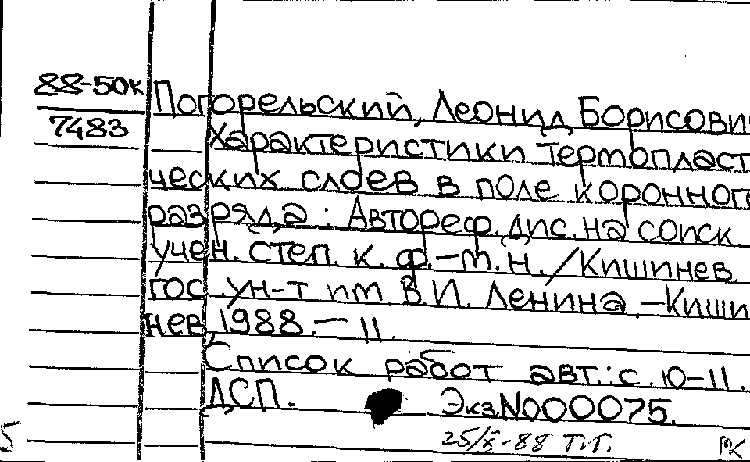 88-50к
7483
Погорельский, Леонид Борисови
Характеристики термопласт
ческих слоев в поле коронног
разряда : Автореф. дис. на соиск
учен. степ. к. ф.-т. н. / Кишинев
гос ун-т им В.И. Ленина .-Киши
нев, 1988.- 11.
Список работ авт.: с. 10-11.
ДСП. Экз.N000075.
25/X-88 Т.Г.
5